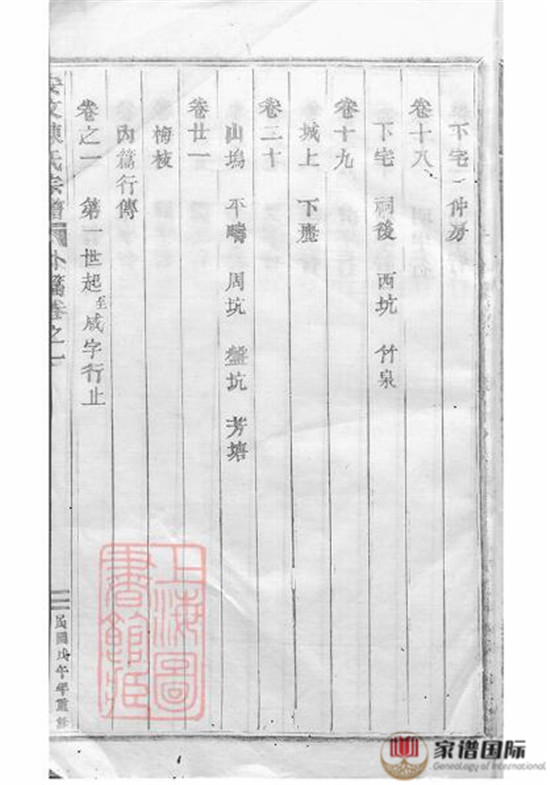 下宅 仲房
卷十八
下宅 祠後 西坑 竹泉
卷十九
城上 下塵
卷二十
山塢 平疇 周坑 盤坑 芳塘
卷廿一
梅枝
內篇行傳
卷之一 第一世起至咸字行止
安文陳氏宗譜 外篇卷之一
三 民國戊午年重修
上海圖書館藏
家谱国际
Genealogy of International